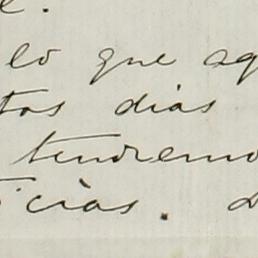 e.
lo que aq
tos dias
tendremo
icias. L